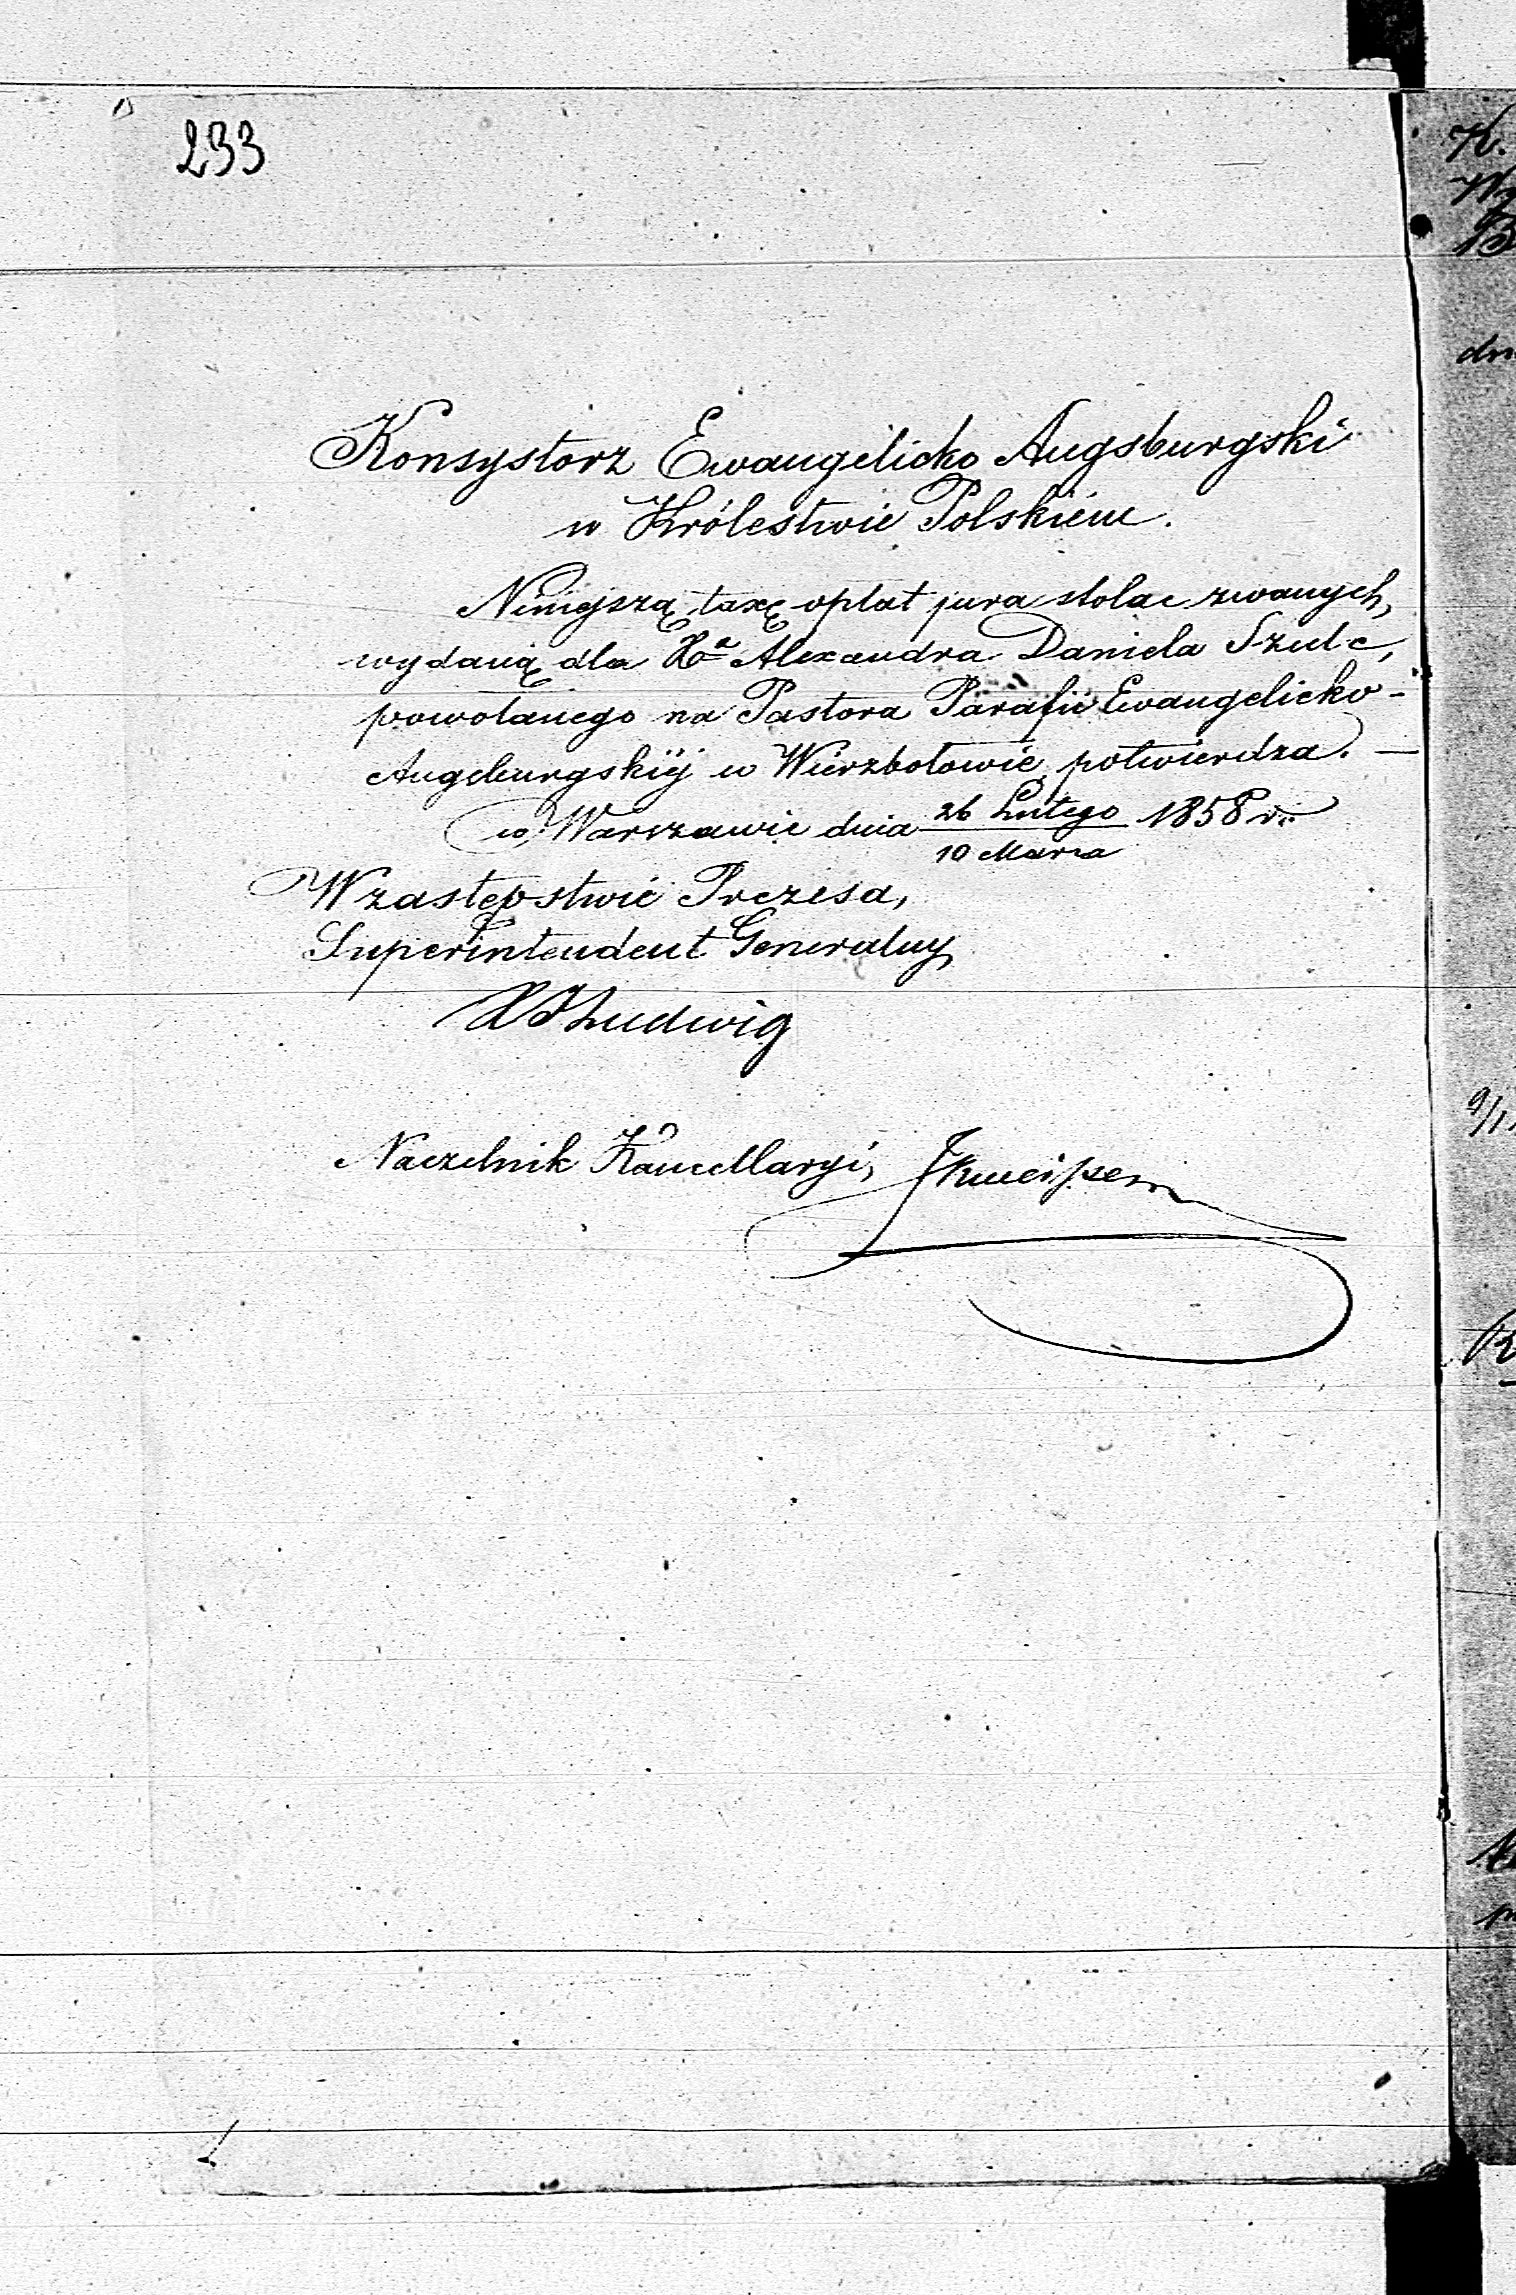 233
Konsystorz Ewangelicko Augsburgski
w Królestwie Polskiém.
Niniejszą taxę opłat jura stolae zwanych,
wydaną dla Xa Alexandra Daniela Szulc,
powołanego na Pastora Parafii Ewangelicko-
Augsburgskiéj w Wierzbołowie, potwierdza. —
w Warszawie dnia 26 Lutego 1858 r.
10 Marca
W zastępstwie Prezesa,
Superintendent Generalny
Ludwig
Naczelnik Kancellaryi,